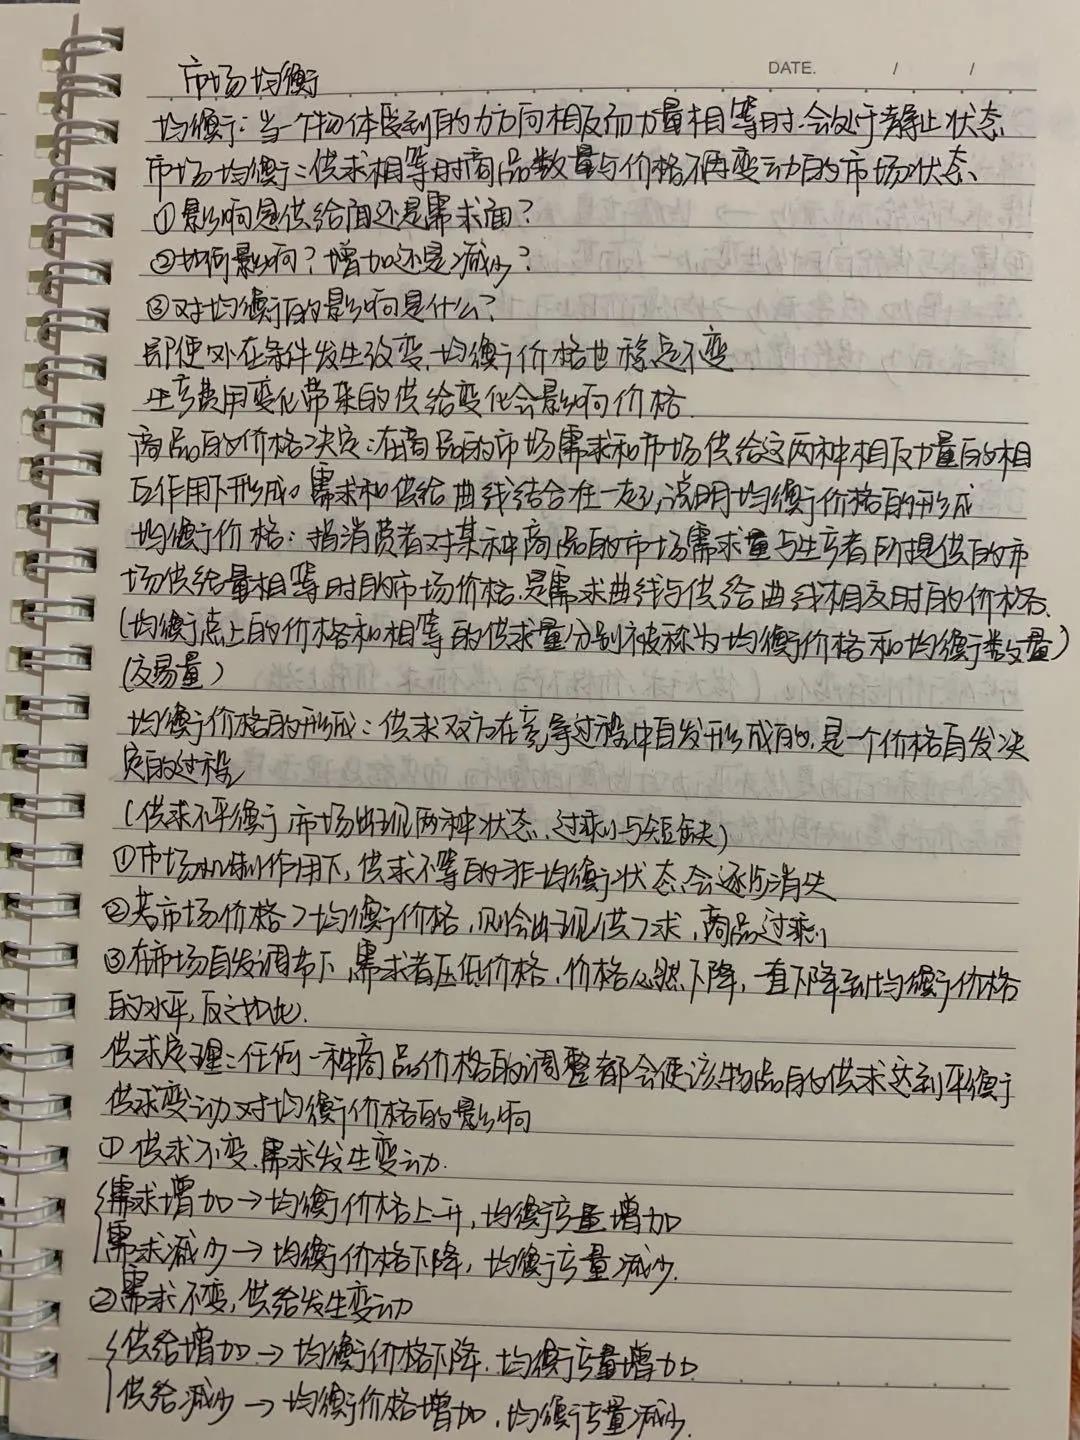 DATE. / /
市场均衡
均衡：当一个物体受到的力方向相反而力量相等时.会处于静止状态
市场均衡：供求相等时商品数量与价格不再变动的市场状态、
①影响是供给面还是需求面？
②如何影响？增加还是减少？
③对均衡的影响是什么？
即便外在条件发生改变、均衡价格也稳定不变
生产费用变化带来的供给变化会影响价格.
商品的价格决定：在商品的市场需求和市场供给这两种相反力量的相
互作用下形成。需求和供给曲线结合在一起，说明均衡价格的形成
均衡价格：指消费者对某种商品的市场需求量与生产者所提供的市
场供给量相等时的市场价格.是需求曲线与供给曲线相交时的价格.
(均衡点上的价格和相等的供求量分别被称为均衡价格和均衡数量)
(交易量)
均衡价格的形成：供求双方在竞争过程中自发形成的.是一个价格自发决
定的过程
(供求不平衡 市场出现两种状态、过剩与短缺)
①市场机制作用下，供求不等的非均衡状态会逐步消失
②若市场价格>均衡价格，则会出现供>求，商品过剩
③在市场自发调节下、需求者压低价格，价格必然下降，一直下降到均衡价格
的水平，反之如此.
供求定理：任何一种商品价格的调整都会使该物品的供求达到平衡
供求变动对均衡价格的影响
①供求不变.需求发生变动.
需求增加→均衡价格上升，均衡产量增加
需求减少→均衡价格下降，均衡产量减少.
②需求不变，供给发生变动
供给增加→均衡价格下降.均衡产量增加
供给减少→均衡价格增加，均衡产量减少.